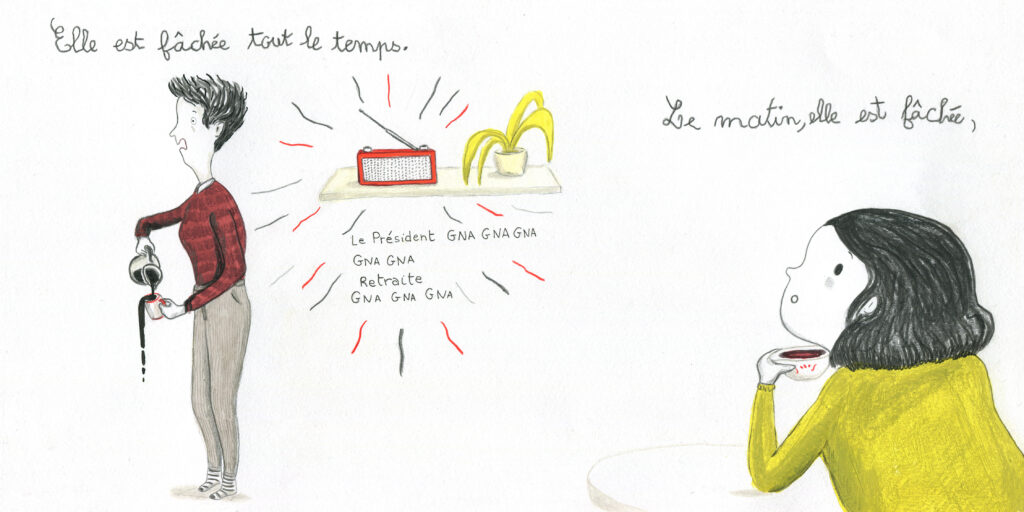 Elle est fâchée tout le temps.
Le Président GNA GNA GNA
GNA GNA
Retraite
GNA GNA GNA
Le matin, elle est fâchée,